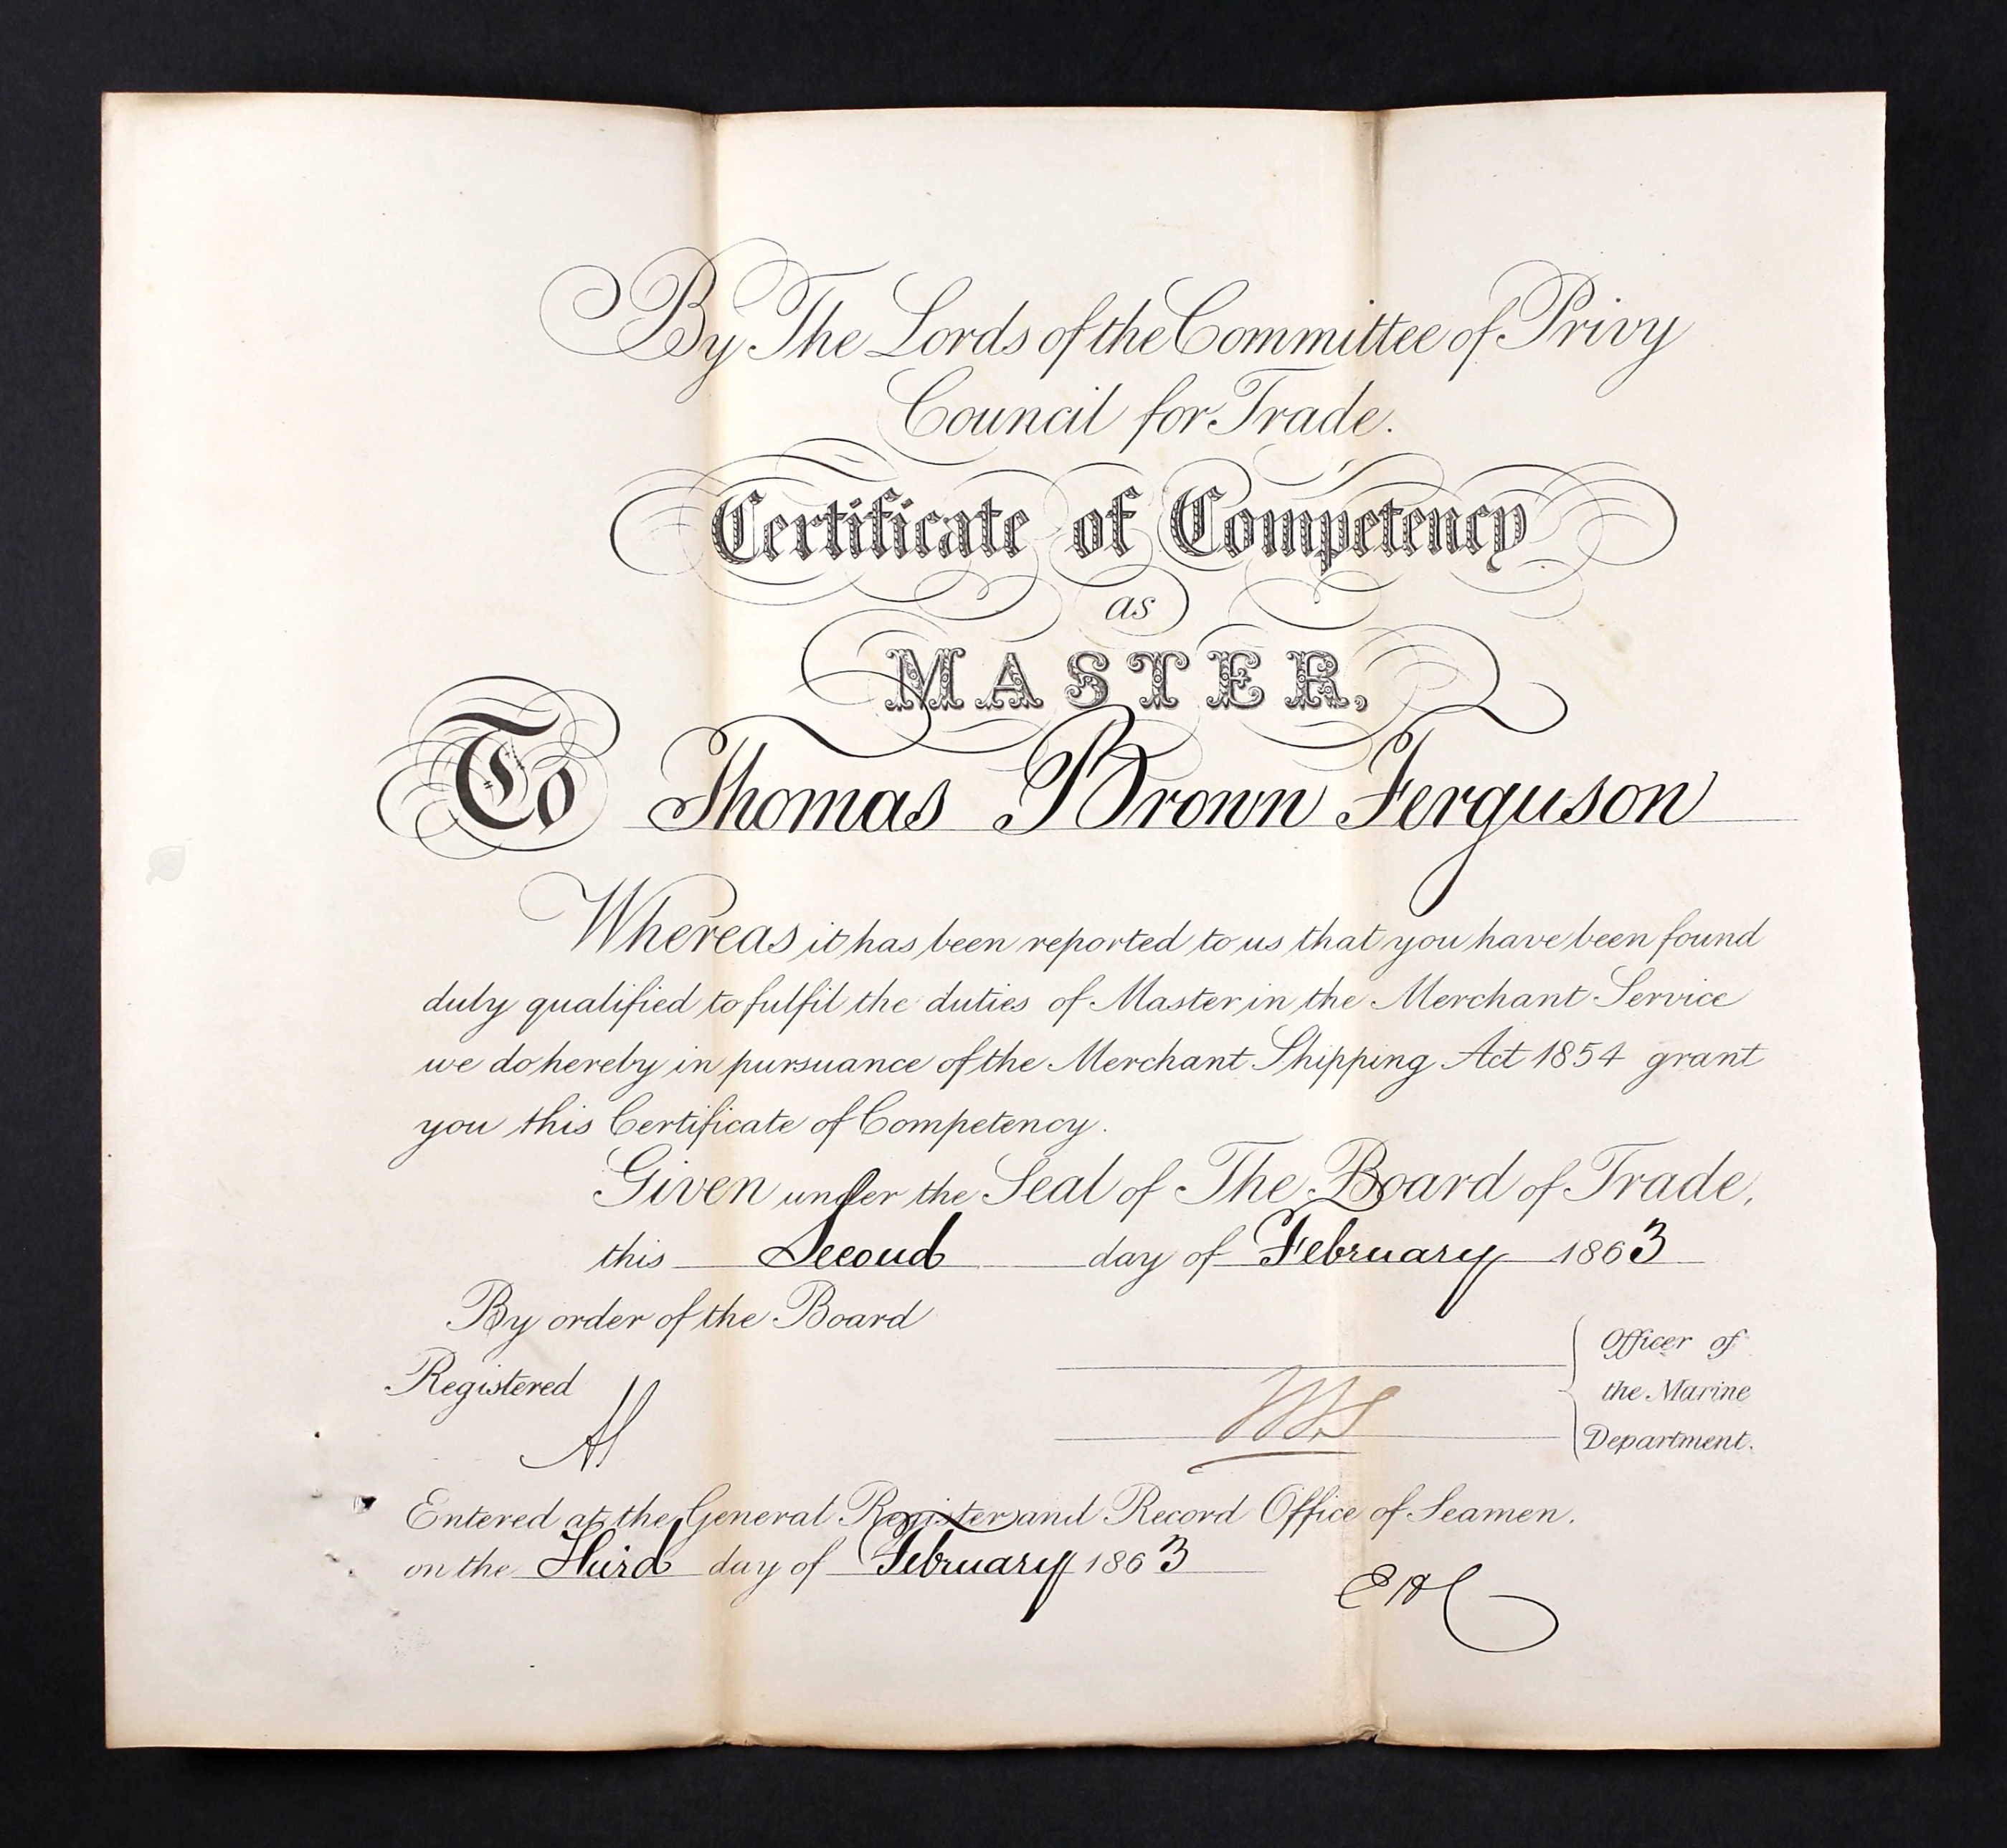 By The Lords of the Committee of Privy
Council for Trade.
Certificate of Competency
as
MASTER,
To Thomas Brown Ferguson
Whereas it has been reported to us that you have been found
duly qualified to fulfil the duties of Master in the Merchant Service
we do hereby in pursuance of the Merchant Shipping Act 1854 grant
you this Certificate of Competency.
Given under the Seal of The Board of Trade,
this Second day of February 1863
By order of the Board
Registered
Officer of
the Marine
Department.
Entered at the General Register and Record Office of Seamen.
on the Third day of February 1863